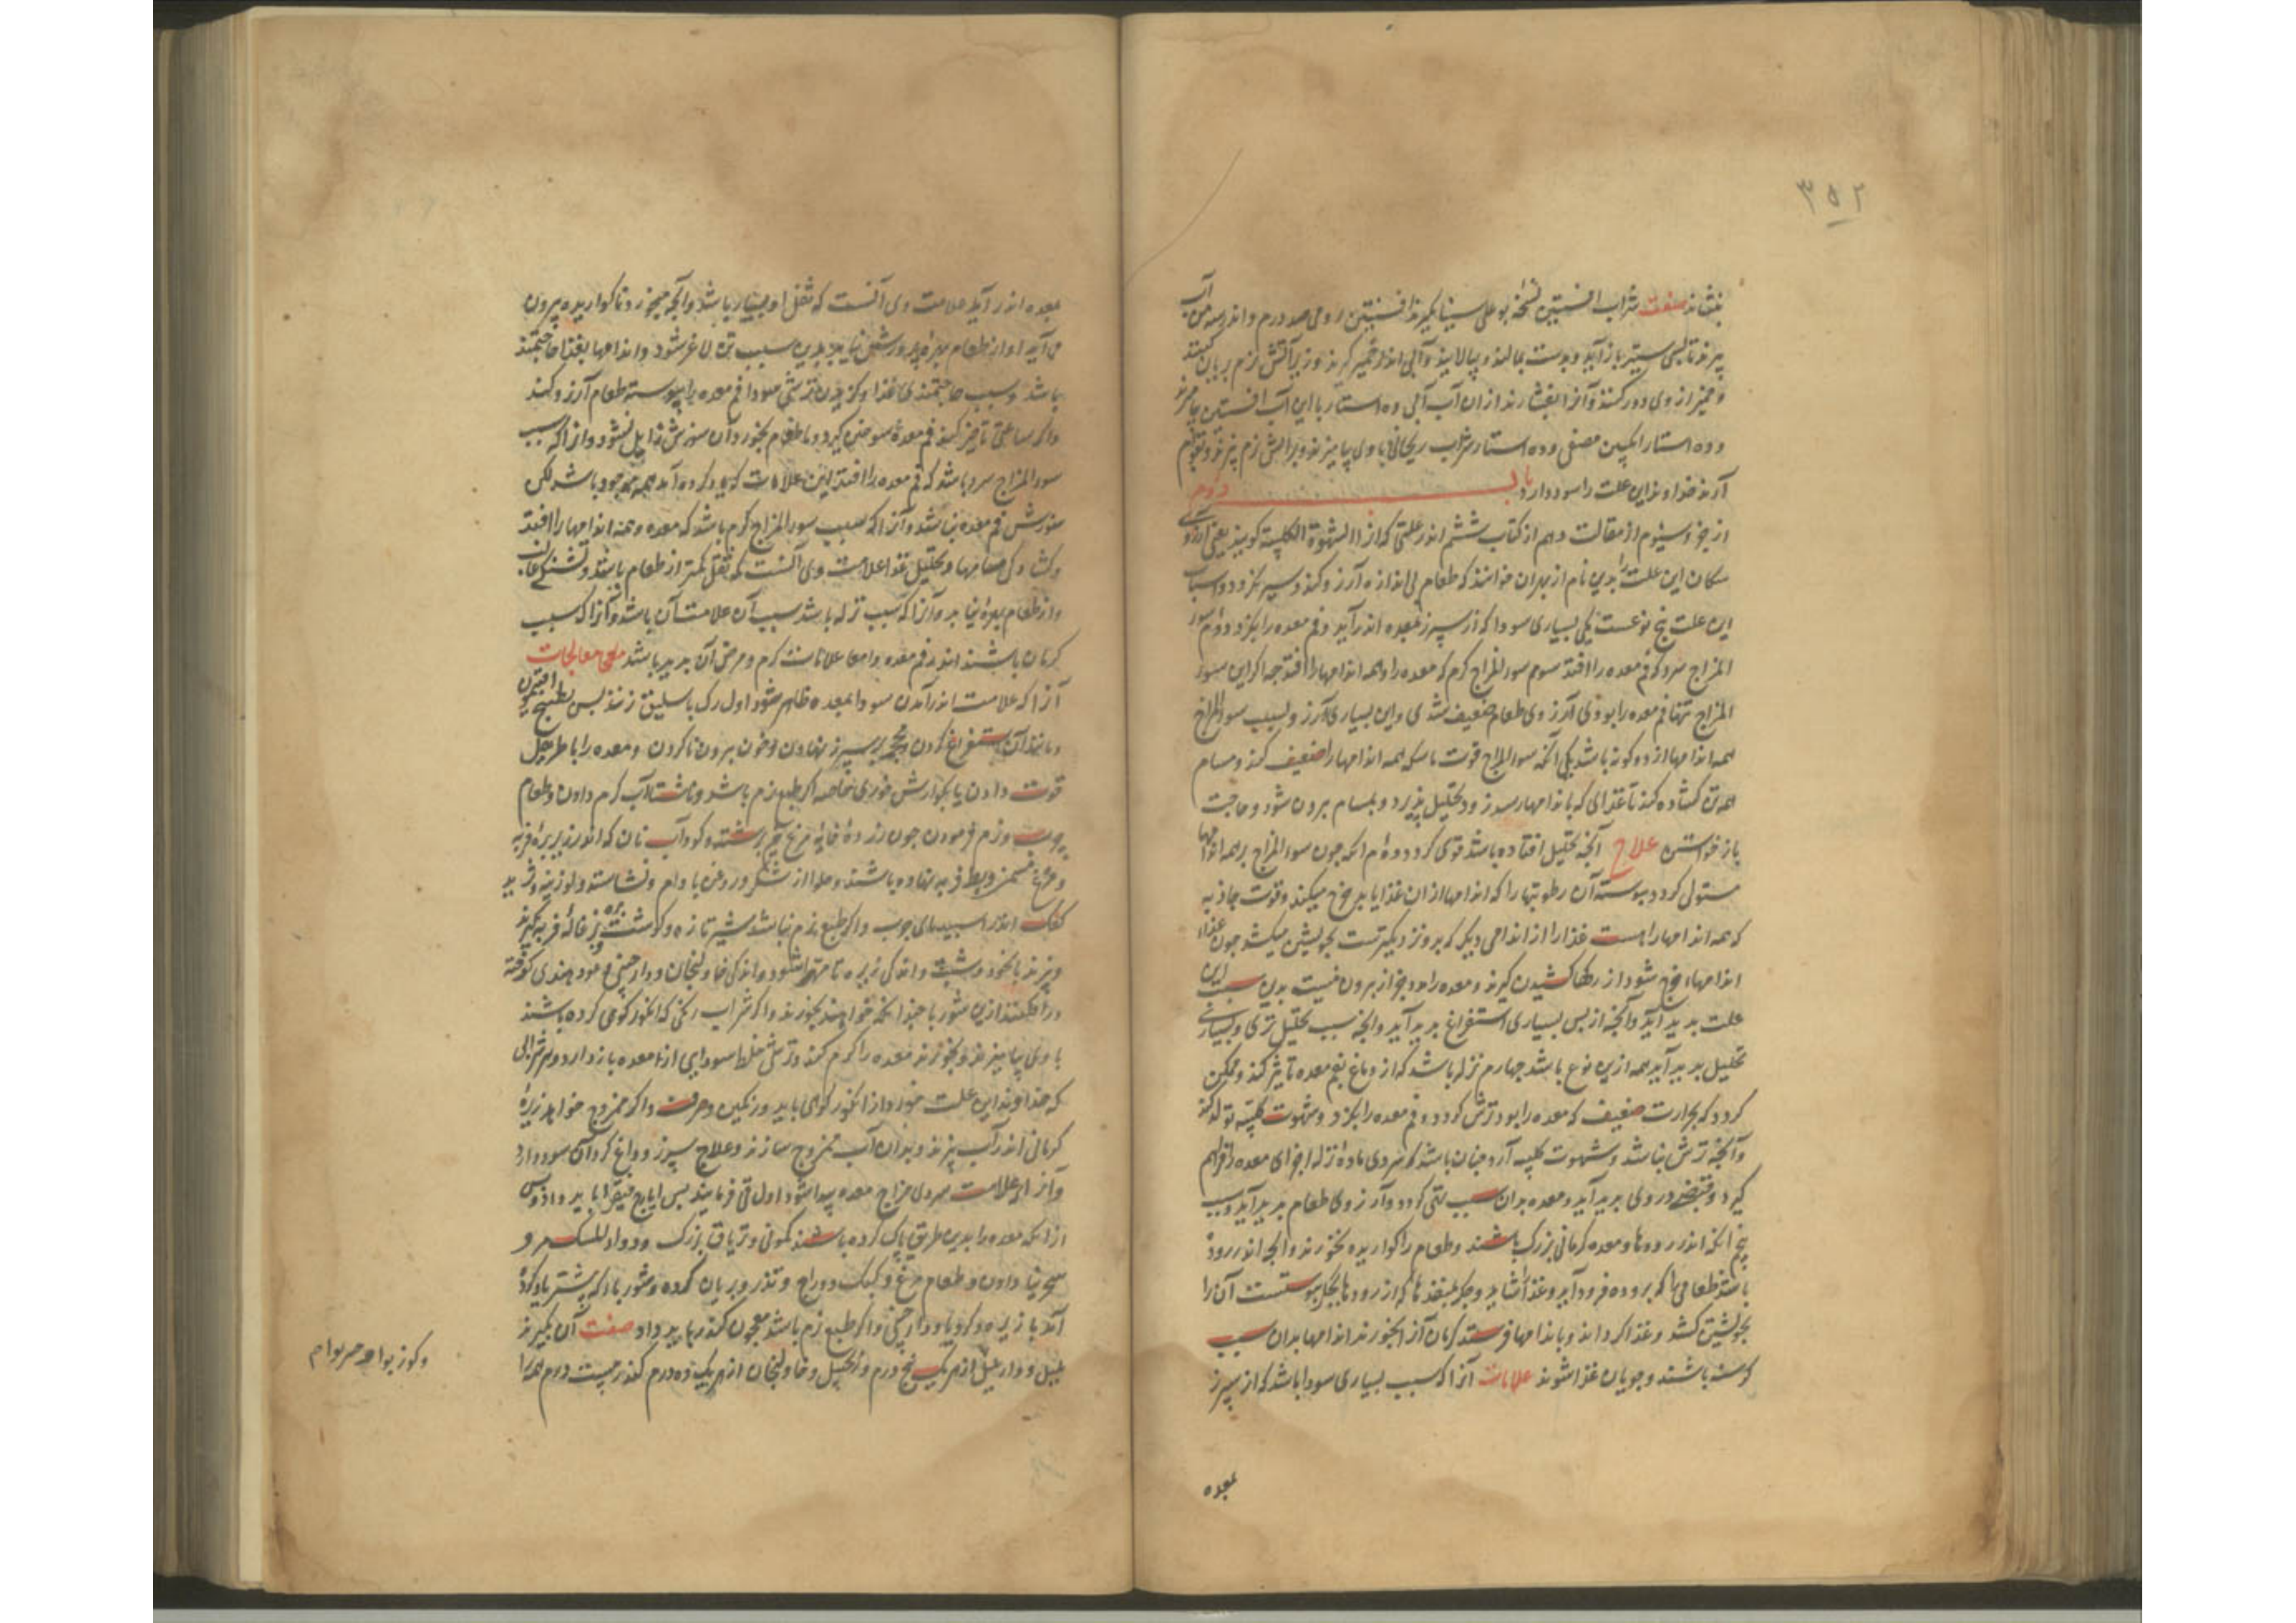 ۳۵۲
بنشاند صفت شراب افسنتین نسخهٔ بوعلی سینا بگیرند افسنتین رومی صد درم و اندر سه من آب
بپزند تا بسیتر باز آید و بدست بمالند و بپالایند و آبی اندر خمیر گیرند و زیر آتش نرم بریان کنند
و خمیر از وی دور کنند و آنرا بفشارند از ان آب آبی ده استار با این آب افسنتین بیامیزند
و ده استار انگبین مصفی و ده استار شراب ریحانی با وی بیامیزند و بر آتش نرم بپزند و بقوام
آرند خداوند این علت را سود دارد باب دوم
از جزو سیوم از مقالت دهم از کتاب ششم اندر علتی که از را الشهوة الکلبیة کویند یعنی آرزوی
سکان این علت را بدین نام از بهر ان خوانند که طعام بی اندازه آرزو کند و سیر نکردد و اسباب
این علت پنج نوعست یکی بسیاری سودا که از سپرز بمعده اندر آید و فم معده را بکزد دوم سو
المزاج سرد که فم معده را افتد سوم سو المزاج کرم که معده را و همه اندامها را افتد جه اکر این سو
المزاج تنها فم معده را بودی آرزوی طعام ضعیف شدی و این بسیاری آرزو بسبب سو المزاج
همه اندامها از دو کونه باشد یکی آنکه سو المزاج قوت ماسکه همه اندامها را ضعیف کند و مسام
همه تن کشاده کند تا غذای که باندامها رسد زود تحلیل پذیرد و بمسام برون شود و حاجت
باز خواستن علاج آنجه تحلیل افتاده باشد قوی کردد دوم انکه جون سو المزاج بر همه اندامها
مستولی کردد پیوسته آن رطوبتها را که اندامها از ان غذا یابد خرج میکند و قوت جاذبه
که همه اندامها را هست غذا را از اندامی دیکر که بدو نزدیکترست بخویشتن میکشد جون غذاء
اندامهاء خرج شود از رکها کشیدن کیرند و معده را مدد جز از برون نیست بدین سبب این
علت بدید آید و آنجه از پس بسیاری استفراغ بدید آید و انجه سبب تحلیل تری و بسیاری
تحلیل بدید آید همه ازین نوع باشد جهارم نزله باشد که از دماغ بفم معده تاثیر کند و ممکن
کردد که بحرارت ضعیف که معده را بود ترش کردد و فم معده را بکزد و شهوت کلبیه تولد کند
و آنجه ترش نباشد و شهوت کلبیه آرد جنان باشد که سردی ماده نزله اجزای معده را فراهم
کیرد و قبضی در وی بدید آید و معده بدان سبب تهی کردد و آرزوی طعام بدید آید و سبب
پنج انکه اندر رودها و معده کرمانی بزرک باشند و طعام را کواریده بخورند و انجه اندر رودهٔ
باشد طعامی را که بروده فرود آید و غذا را شاید و جکر بمنفذها که از رودها بجکر پیوستست آن را
بخویشتن کشد و غذا کرداند و باندامها فرستد کرمان آنرا بخورند اندامها بدان سبب
کرسنه باشند و جویان غذا شوند علامات آنرا که سبب بسیاری سودا باشد که از سپرز
بمعده
معده اندر آید علامت وی آنست که ثفل او بسیار باشد و آنجه میخورد ناکواریده بیرون
می آید او از طعام بهره و پرورشی نیابد بدین سبب تن لاغر شود و اندامها بغذا حاجتمند
باشد و سبب حاجتمندی غذا و کزیدن ترشی سودا فم معده را پیوسته طعام آرزو کند
و اکر ساعتی تاخیر کند فم معده سوختن کیرد و تا طعام نخورد آن سوزش زایل نشود و انرا که سبب
سو المزاج سرد باشد که فم معده را افتد این علامات که یاد کرده آمد همه موجود باشد لکن
سوزش فم معده نباشد و آنرا که سبب سو المزاج کرم باشد که معده و همه اندامها را افتد
و کشادکی مسامها و تحلیل غذا علامت وی آنست که ثفل کمتر از طعام باشد و تشنکی غالب
و از طعام بهره نیابد و آنرا که سبب نزله باشد سبب آن علامت آن باشد و آنرا که سبب
کرمان باشند اندر فم معده و امعا علامات کرم و مرض آن بدید باشد معالجات
آنرا که علامت اندر آمدن سودا بمعده ظاهر شود اول رک باسلیق زنند پس بطبیخ افتیمون
و مانند آن استفراغ کردن و محجمه بر سپرز نهادن و خون برون ناکردن و معده را باطریفل
قوت دادن یا بکوارش خوزی خاصه اکر طبع نرم باشد و ناشتا آب کرم دادن و طعام
چرب و نرم فرمودن جون زردهٔ خایهٔ مرغ نیم برشته و کوداب نان که اندر زیر برهٔ فربه
و مرغ مسمن و بط فربه نهاده باشند و حلوا از شکر و روغن بادام و نشاسته و لوزینه و ثرید
کعک اندر اسپیدبای چرب و اکر طبع نرم نباشد شیر تازه و کوشت بره و بزغالهٔ فربه بکیرند
و بپزند با نخود و شبت و اندکی زیره تا مهرا شود و اندکی خاولنجان و دارچینی و عود هندی کوفته
در افکنند ازین شوربا جندانکه خواهند بخورند و اکر شراب رنکی که انکور کوهی کرده باشند
با وی بیامیزند و بخورند معده را کرم کند و ترشی خلط سودایی از معده باز دارد و شرابی
که خداوند این علت خورد از انکور کوهی باید و رنکین و صرف و اکر ممزوج خواهد زیرهٔ
کرمانی اندر آب پزند و بدان آب ممزوج سازند و علاج سپرز و داغ کردن سود دارد
و آنرا که علامت سردی مزاج معده پیدا شود اول قی فرمایند پس ایارج فیقرا باید داد و پس
از انکه معده را بدین طریق پاک کرده باشند کمونی و تریاق بزرک و دواء المسک و
سجرنیا دادن و طعام مرغ و کبک و دراج و تذرو بریان کرده و شوربا که پیشتر یاد کرده
آمد با زیره و کرویا و دارچینی و اکر طبع نرم باشد معجون کندر باید داد صفت آن بکیرند
پلپل و دارپلپل از هر یک پنج درم و زنجبیل و خاولنجان از هر یک ده درم کندر بیست درم همه را